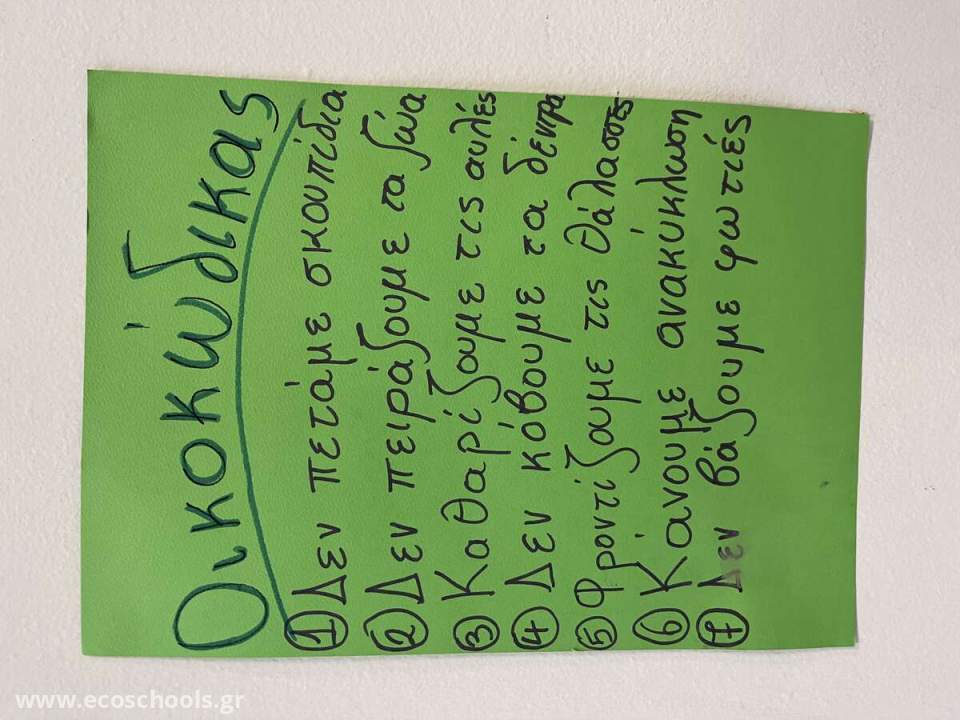 Οικοκώδικας
1 Δεν πετάμε σκουπίδια
2 Δεν πειράζουμε τα ζώα
3 Καθαρίζουμε τις αυλές
4 Δεν κόβουμε τα δέντρα
5 Φροντίζουμε τις θάλασσες
6 Κάνουμε ανακύκλωση
7 Δεν βάζουμε φωτιές
www.ecoschools.gr